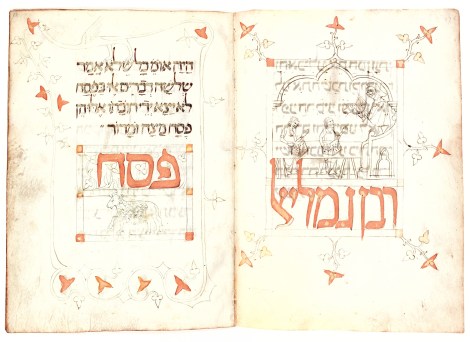 רבן גמליאל
היה אומ׳ כל שלא אמר
שלשה דברים אלו בפסח
לא יצא ידי חובתו אלו הן
פסח מצה ומרור
פסח